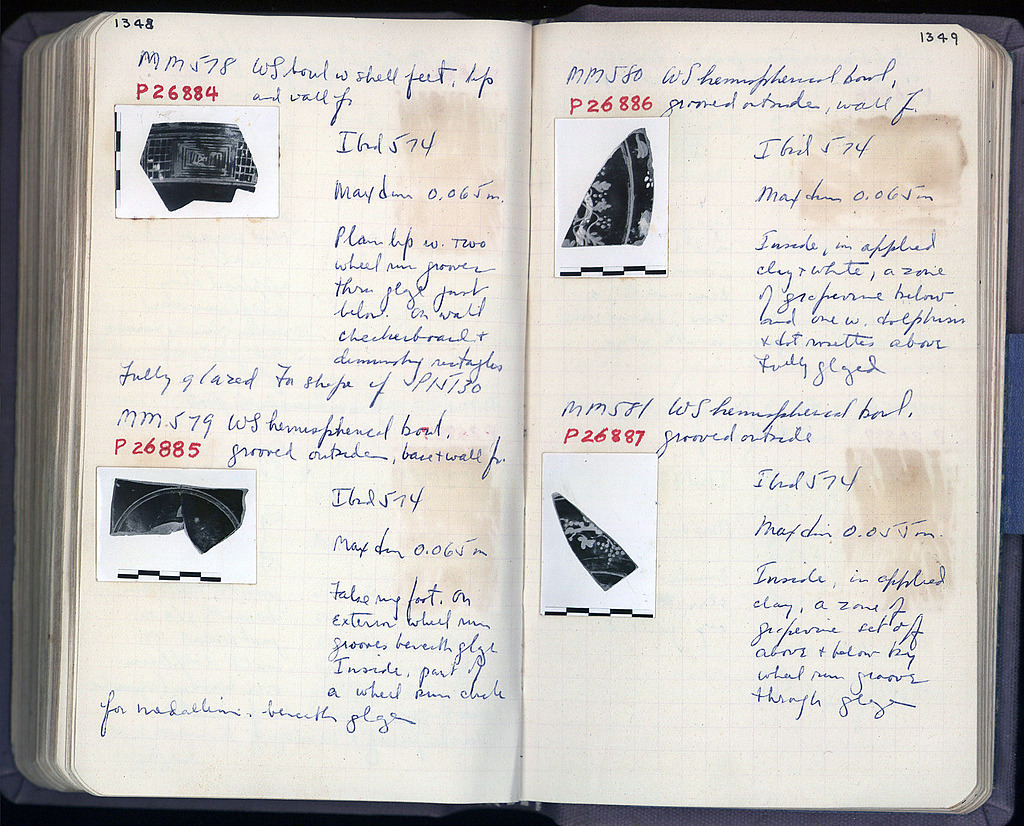 1348
MM 578 WS bowl w shell feet, lip
P 26884 and wall fr
Ibid 574
Max dim 0.065 m.
Plain lip w. two
wheel run grooves
thru glaze just
below. On wall
checkerboard +
diminishing rectagles
Fully glazed For shape cf P15130
MM 579 WS hemispherical bowl,
P 26885 grooved outside, base + wall fr.
Ibid 574
Max dim 0.065 m
False ring foot. On
exterior wheel run
grooves beneath glaze
Inside, part of
a wheel run circle
for medallion, beneath glaze
1349
MM 580 WS hemispherical bowl,
P 26886 grooved outside, wall f.
Ibid 574
Max dim 0.065 m
Inside, in applied
clay + white, a zone
of grapevine below
and one w. dolphins
+ dot rosettes above
Fully glazed
MM 581 WS hemispherical bowl,
P 26887 grooved outside
Ibid 574
Max dim 0.055 m.
Inside, in applied
clay, a zone of
grapevine set off
above + below by
wheel run groove
through glaze